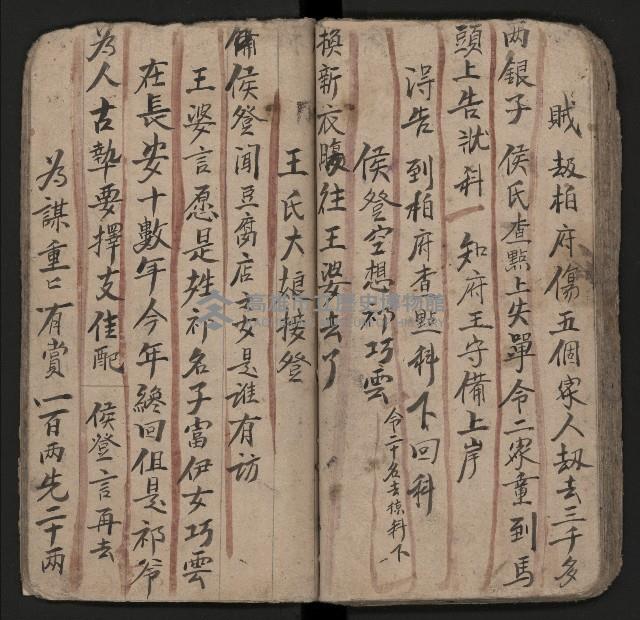 賊刼柏府傷五個家人刼去三千多
两銀子 侯氏查點上失單令二家童到馬
頭上告狀科一 知府王守備上岸
淂告到柏府查點科下回科
侯登空想祁巧雲 令二十名去捺科下
換新衣腸往王婆去了
王氏大娘接登
備侯登闻豆腐店之女是谁有访
王婆言愿是姓祁名子富伊女巧雲
在長安十數年今年纔回但是祁爷
為人古執要擇支佳配 侯登言再去
為謀重匕有賞一百两先二十两
高雄市立歷史博物館